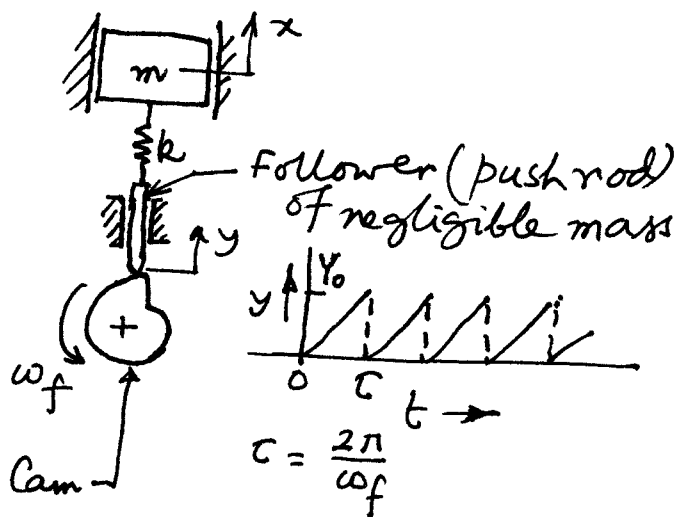 x
m
k
Follower (pushrod)
of negligible mass
y
y
Y₀
0
τ
t
ω_f
τ = 2π/ω_f
Cam